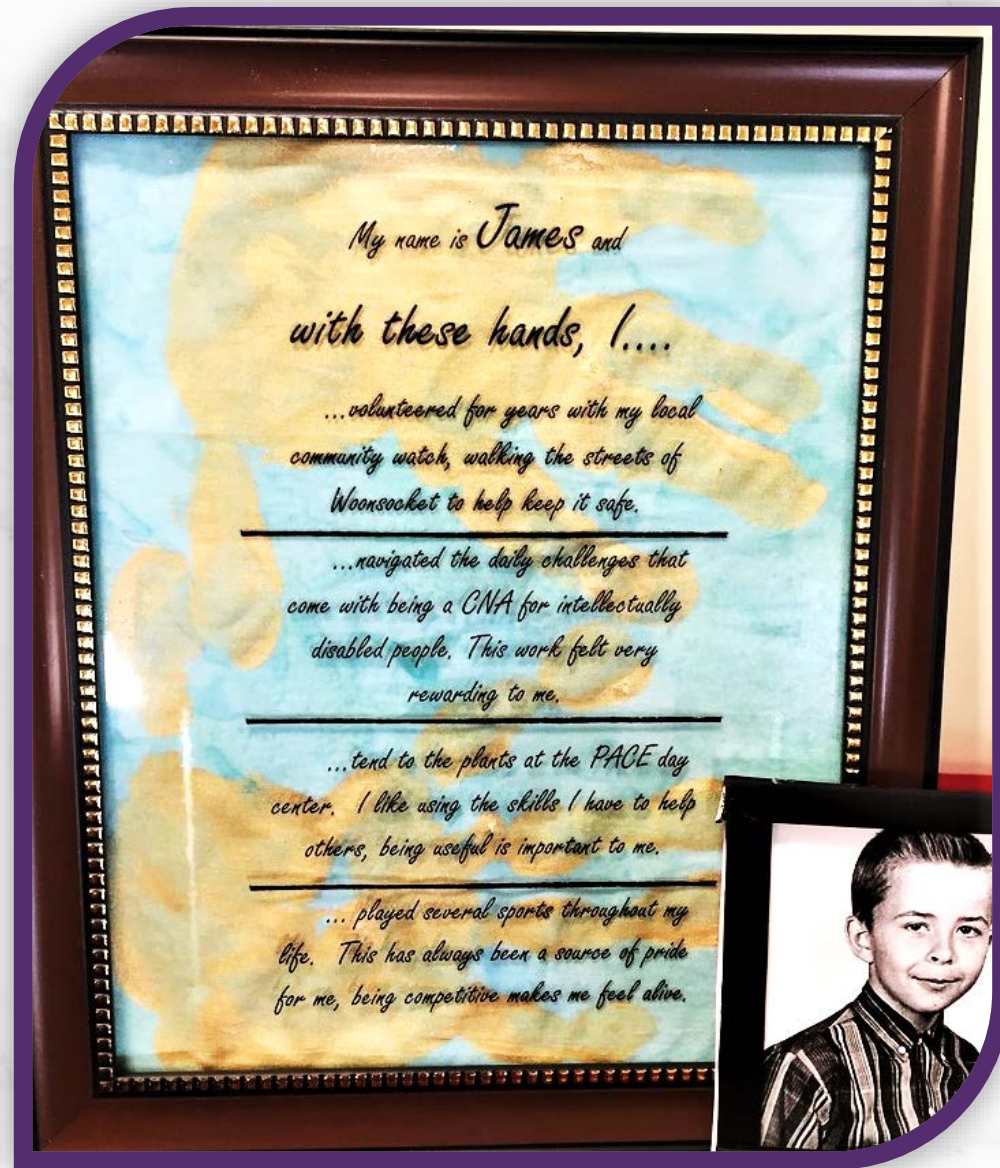 My name is James and
with these hands, I....
...volunteered for years with my local
community watch, walking the streets of
Woonsocket to help keep it safe.
...navigated the daily challenges that
come with being a CNA for intellectually
disabled people. This work felt very
rewarding to me.
...tend to the plants at the PACE day
center. I like using the skills I have to help
others, being useful is important to me.
... played several sports throughout my
life. This has always been a source of pride
for me, being competitive makes me feel alive.